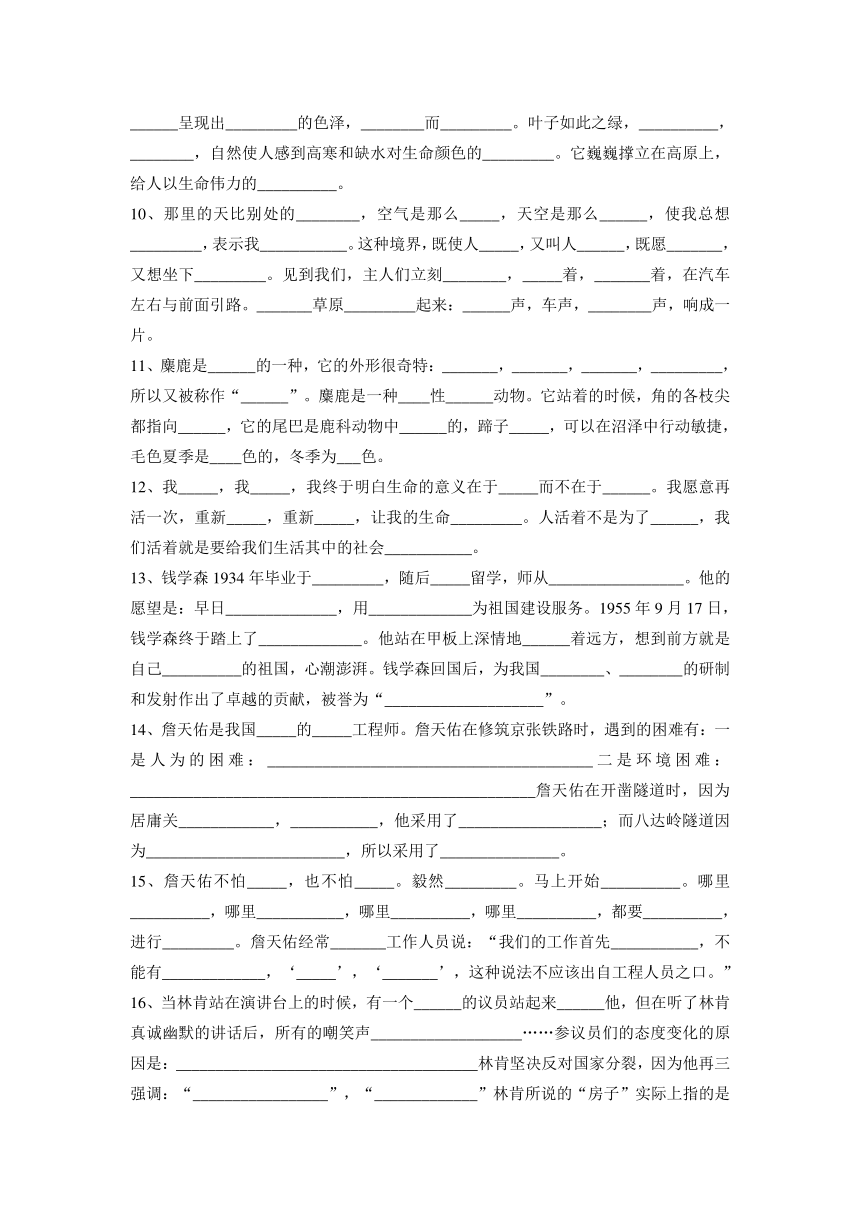 ______呈现出_________的色泽，________而_________。叶子如此之绿，__________，
________，自然使人感到高寒和缺水对生命颜色的_________。它巍巍撑立在高原上，
给人以生命伟力的__________。
10、那里的天比别处的________，空气是那么_____，天空是那么______，使我总想
_________，表示我___________。这种境界，既使人_____，又叫人______，既愿_______，
又想坐下_________。见到我们，主人们立刻________，_____着，_______着，在汽车
左右与前面引路。_______草原_________起来：______声，车声，________声，响成一
片。
11、麋鹿是______的一种，它的外形很奇特：_______，_______，_______，_________，
所以又被称作“______”。麋鹿是一种____性______动物。它站着的时候，角的各枝尖
都指向______，它的尾巴是鹿科动物中______的，蹄子_____，可以在沼泽中行动敏捷，
毛色夏季是____色的，冬季为___色。
12、我_____，我_____，我终于明白生命的意义在于_____而不在于______。我愿意再
活一次，重新_____，重新_____，让我的生命_________。人活着不是为了______，我
们活着就是要给我们生活其中的社会___________。
13、钱学森 1934 年毕业于_________，随后_____留学，师从_________________。他的
愿望是：早日______________，用_____________为祖国建设服务。1955 年 9 月 17 日，
钱学森终于踏上了_____________。他站在甲板上深情地______着远方，想到前方就是
自己__________的祖国，心潮澎湃。钱学森回国后，为我国________、________的研制
和发射作出了卓越的贡献，被誉为“____________________”。
14、詹天佑是我国_____的_____工程师。詹天佑在修筑京张铁路时，遇到的困难有：一
是人为的困难：_________________________________________二是环境困难：
___________________________________________________詹天佑在开凿隧道时，因为
居庸关____________，___________，他采用了__________________；而八达岭隧道因
为_________________________，所以采用了_______________。
15、詹天佑不怕_____，也不怕_____。毅然_________。马上开始__________。哪里
__________，哪里___________，哪里__________，哪里__________，都要__________，
进行_________。詹天佑经常_______工作人员说：“我们的工作首先___________，不
能有_____________，‘_____’，‘_______’，这种说法不应该出自工程人员之口。”
16、当林肯站在演讲台上的时候，有一个______的议员站起来______他，但在听了林肯
真诚幽默的讲话后，所有的嘲笑声___________________……参议员们的态度变化的原
因是：______________________________________林肯坚决反对国家分裂，因为他再三
强调：“_________________”，“_____________”林肯所说的“房子”实际上指的是